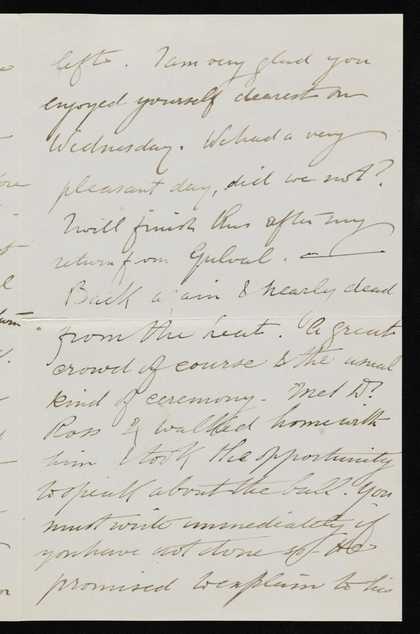 left. I am very glad you
enjoyed yourself dearest on
Wednesday. We had a very
pleasant day, did we not?
I will finish this after my
return from Gulval. —
Back again & nearly dead
from the heat. A great
crowd of course & the usual
kind of ceremony. Met Dr.
Ross & walked home with
him & took the opportunity
to speak about the ball. You
must write immediately if
you have not done so - He
promised to explain to his